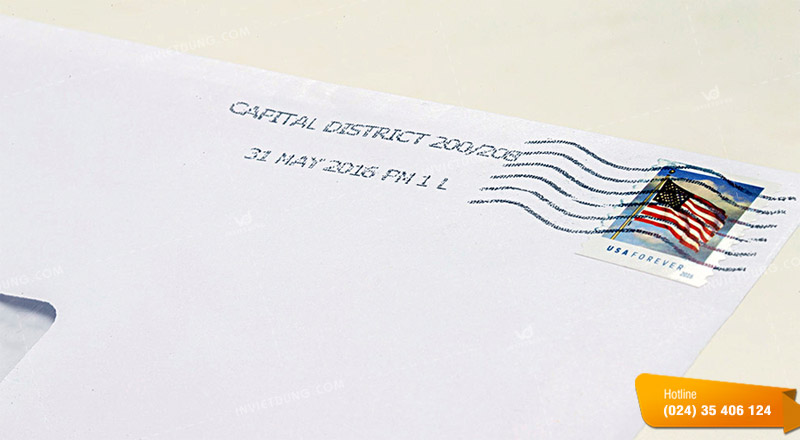 CAPITAL DISTRICT 200/208
31 MAY 2016 PM 1 L
USA FOREVER
Hotline
(024) 35 406 124
INVIETDUNG.COM